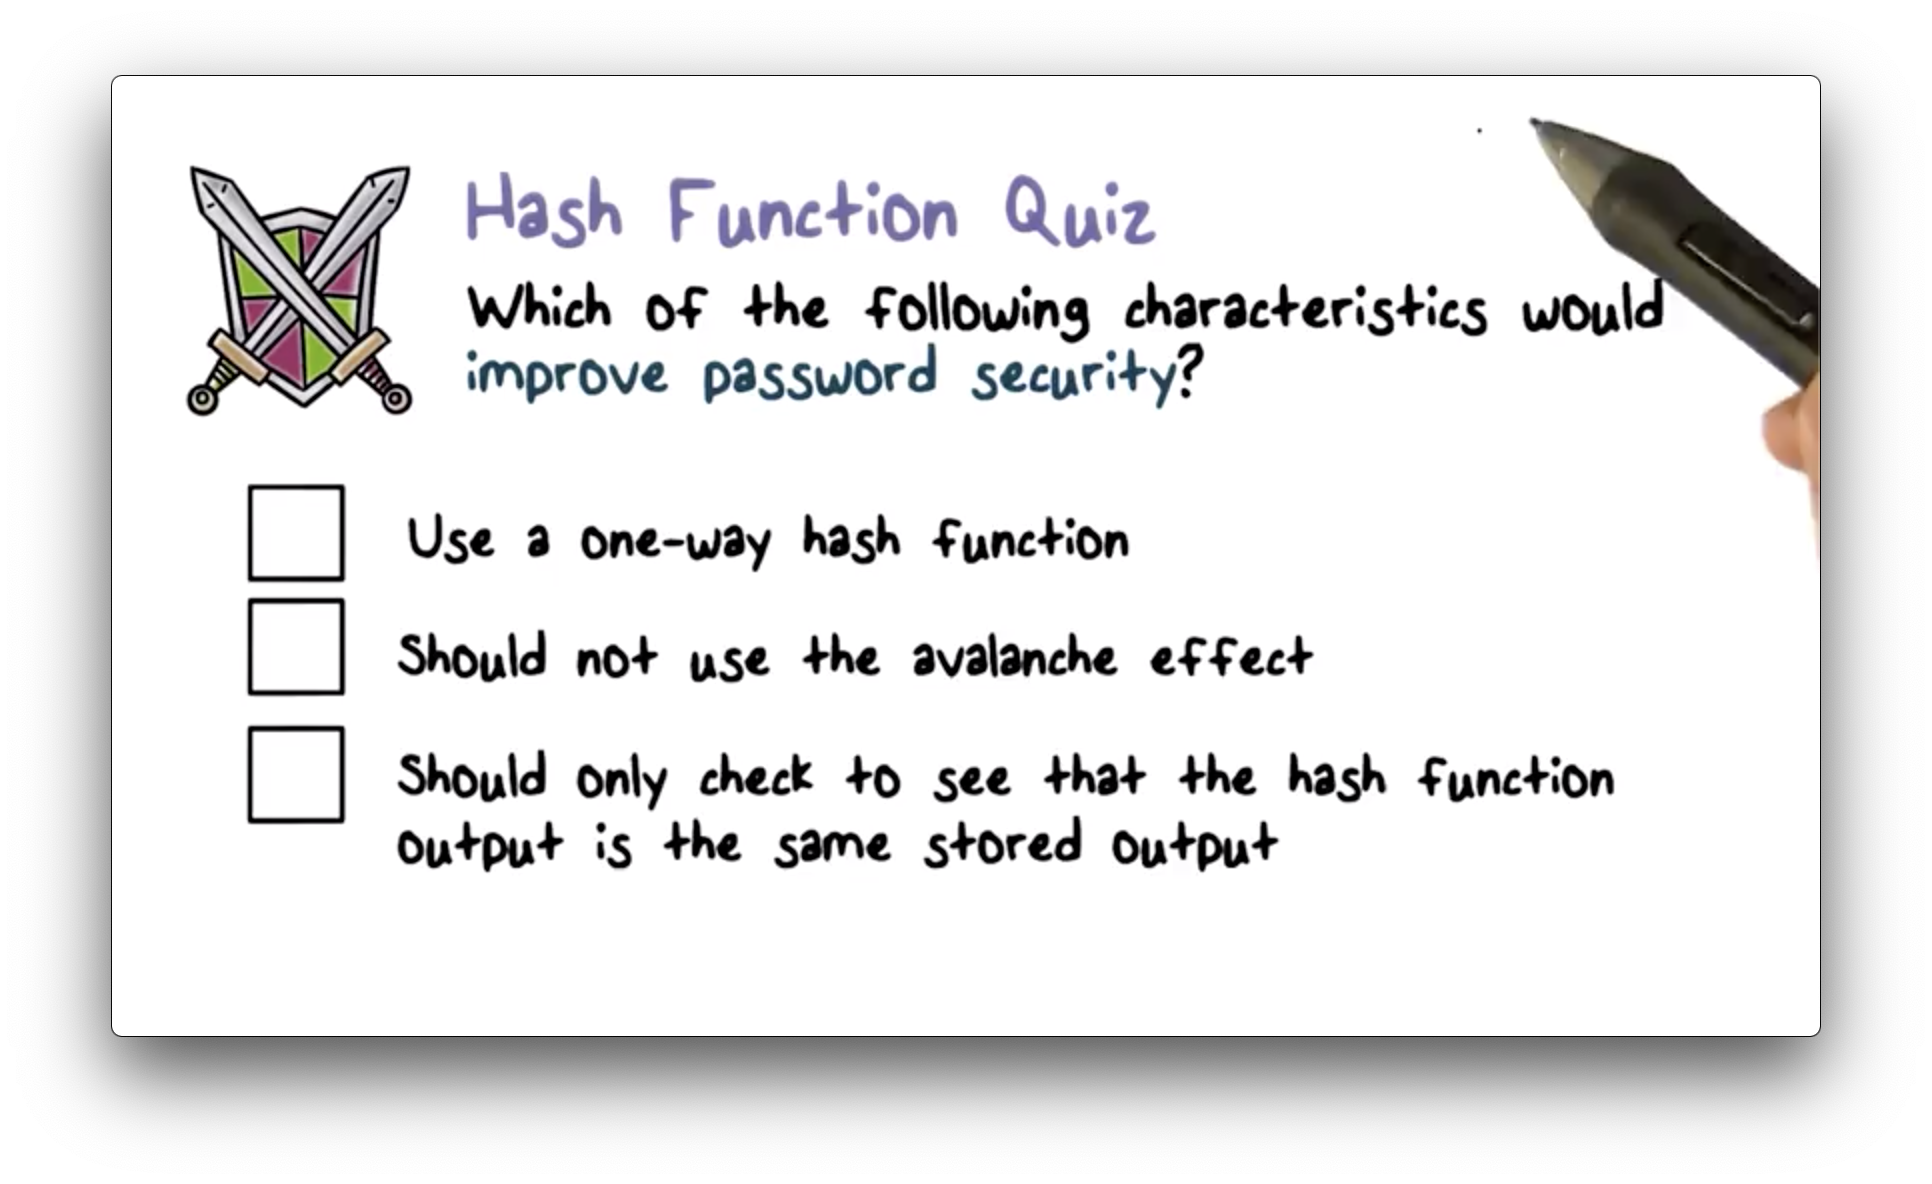 Hash Function Quiz
Which of the following characteristics would
improve password security?
Use a one-way hash function
Should not use the avalanche effect
Should only check to see that the hash function
output is the same stored output